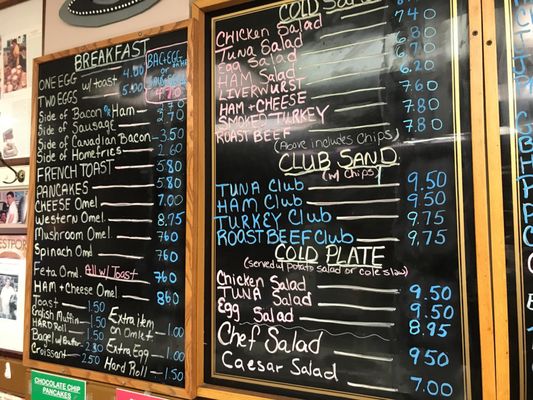 BREAKFAST
ONE EGG w/toast 4.00
TWO EGGS 5.00
BAC + EGG
4.70
Side of Bacon or Ham 3.70
Side of Sausage
Side of Canadian Bacon 3.50
Side of Homefries 2.60
FRENCH TOAST 5.80
PANCAKES 5.80
CHEESE Omel 7.00
Western Omel 8.75
Mushroom Omel 7.60
Spinach Omd 7.60
Feta Omd. All w/Toast 7.60
HAM + CHEESE Omel 8.60
Toast 1.50
English Muffin 1.50
HARD Roll 1.50
Bagel w/Butter 2.00
Croissant 2.50
Extra item on Omlet 1.00
Extra Egg 1.00
Hard Roll 1.50
CHOCOLATE CHIP PANCAKES
COLD SAND
Chicken Salad 7.40
Tuna Salad
Egg Salad 6.80
HAM Salad 6.70
LIVERWURST 6.20
HAM + CHEESE 7.60
SMOKED TURKEY 7.80
ROAST BEEF 7.80
(Above includes Chips)
CLUB SAND
(w/ Chips)
TUNA Club 9.50
HAM Club 9.50
TURKEY Club 9.75
ROAST BEEF Club 9.75
COLD PLATE
(served w/ potato salad or cole slaw)
Chicken Salad 9.50
TUNA Salad 9.50
Egg Salad 8.95
Chef Salad 9.50
Caesar Salad 7.00